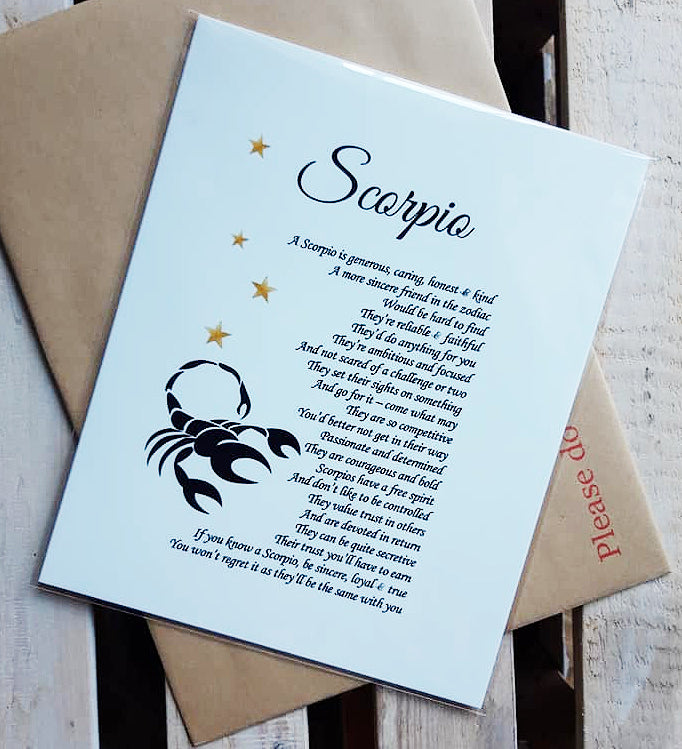 Scorpio
A Scorpio is generous, caring, honest & kind
A more sincere friend in the zodiac
Would be hard to find
They're reliable & faithful
They'd do anything for you
They're ambitious and focused
And not scared of a challenge or two
They set their sights on something
And go for it – come what may
They are so competitive
You'd better not get in their way
Passionate and determined
They are courageous and bold
Scorpios have a free spirit
And don't like to be controlled
They value trust in others
And are devoted in return
They can be quite secretive
Their trust you'll have to earn
If you know a Scorpio, be sincere, loyal & true
You won't regret it as they'll be the same with you
Please do